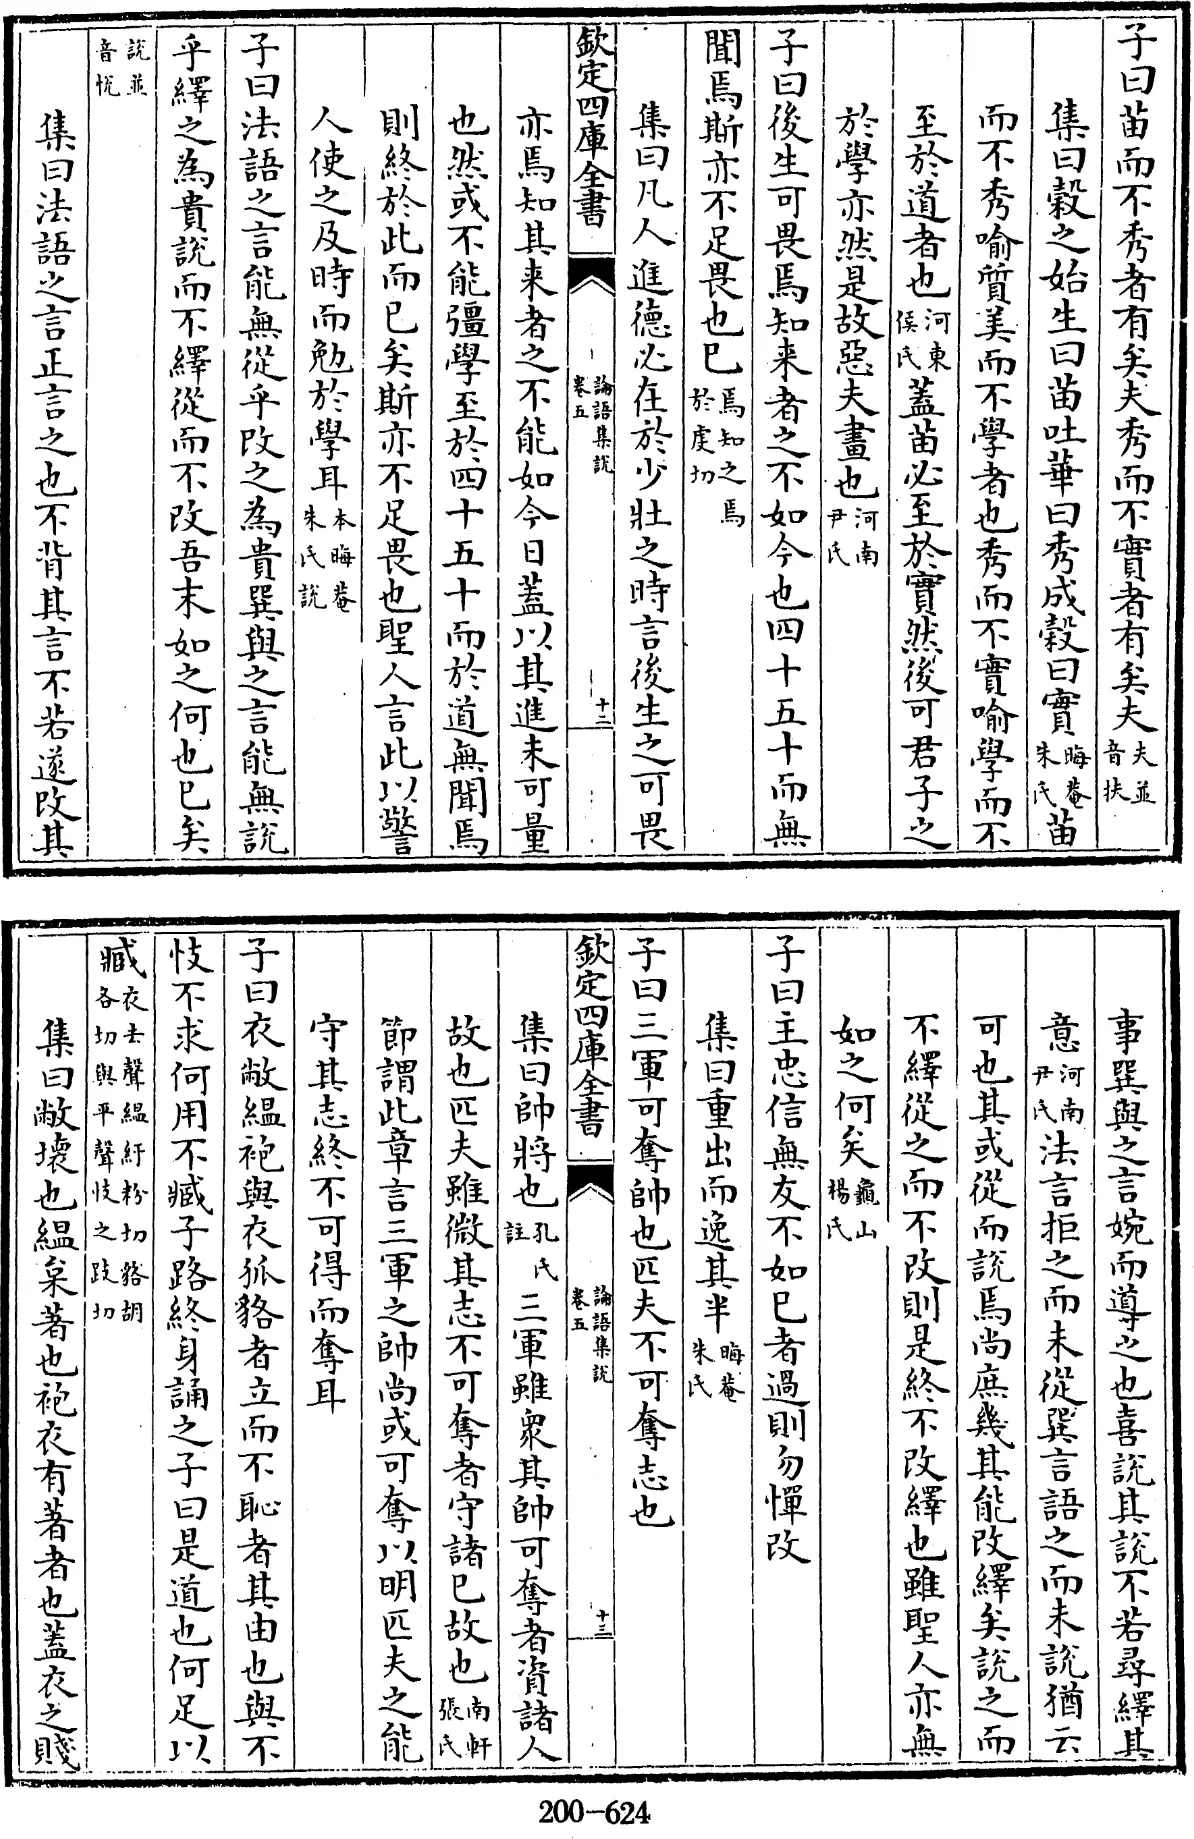 子曰苗而不秀者有矣夫秀而不實者有矣夫夫並音扶
集曰穀之始生曰苗吐華曰秀成穀曰實晦菴朱氏苗
而不秀喻質美而不學者也秀而不實喻學而不
至於道者也河東侯氏蓋苗必至於實然後可君子之
於學亦然是故惡夫畫也河南尹氏
子曰後生可畏焉知来者之不如今也四十五十而無
聞焉斯亦不足畏也已焉知之焉於虔切
集曰凡人進德必在於少壯之時言後生之可畏
欽定四庫全書
論語集說卷五
十二
亦焉知其来者之不能如今日蓋以其進未可量
也然或不能彊學至於四十五十而於道無聞焉
則終於此而已矣斯亦不足畏也聖人言此以警
人使之及時而勉於學耳本晦菴朱氏說
子曰法語之言能無從乎改之為貴巽與之言能無說
乎繹之為貴說而不繹從而不改吾末如之何也已矣
說並音悅
集曰法語之言正言之也不背其言不若遂改其
事巽與之言婉而導之也喜說其說不若尋繹其
意河南尹氏法言拒之而未從巽言語之而未說猶云
可也其或從而說焉尚庶幾其能改繹矣說之而
不繹從之而不改則是終不改繹也雖聖人亦無
如之何矣龜山楊氏
子曰主忠信無友不如已者過則勿憚改
集曰重出而逸其半晦菴朱氏
子曰三軍可奪帥也匹夫不可奪志也
欽定四庫全書
論語集說卷五
十三
集曰帥將也孔氏註三軍雖衆其帥可奪者資諸人
故也匹夫雖微其志不可奪者守諸已故也南軒張氏
節謂此章言三軍之帥尚或可奪以明匹夫之能
守其志終不可得而奪耳
子曰衣敝縕袍與衣狐貉者立而不恥者其由也與不
忮不求何用不臧子路終身誦之子曰是道也何足以
臧衣去聲縕紆粉切貉胡各切與平聲忮之豉切
集曰敝壞也縕枲著也袍衣有著者也蓋衣之賤
200-624